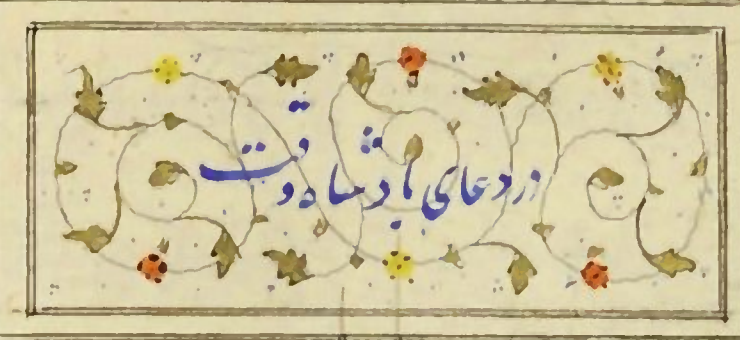 در دعای پادشاه وقت